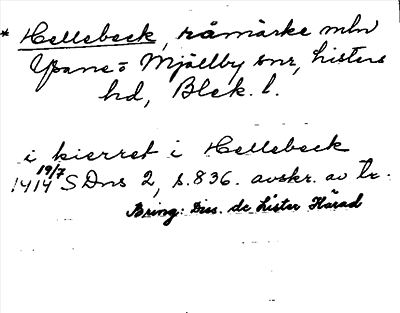 * Hellebeck, råmärke mln
Ysane o Mjällby snr, Listers
hd, Blek. l.
i kierret i Hellebeck
1414 19/7 SDns 2, s. 836. avskr. av
Bring: Diss. de Lister Härad